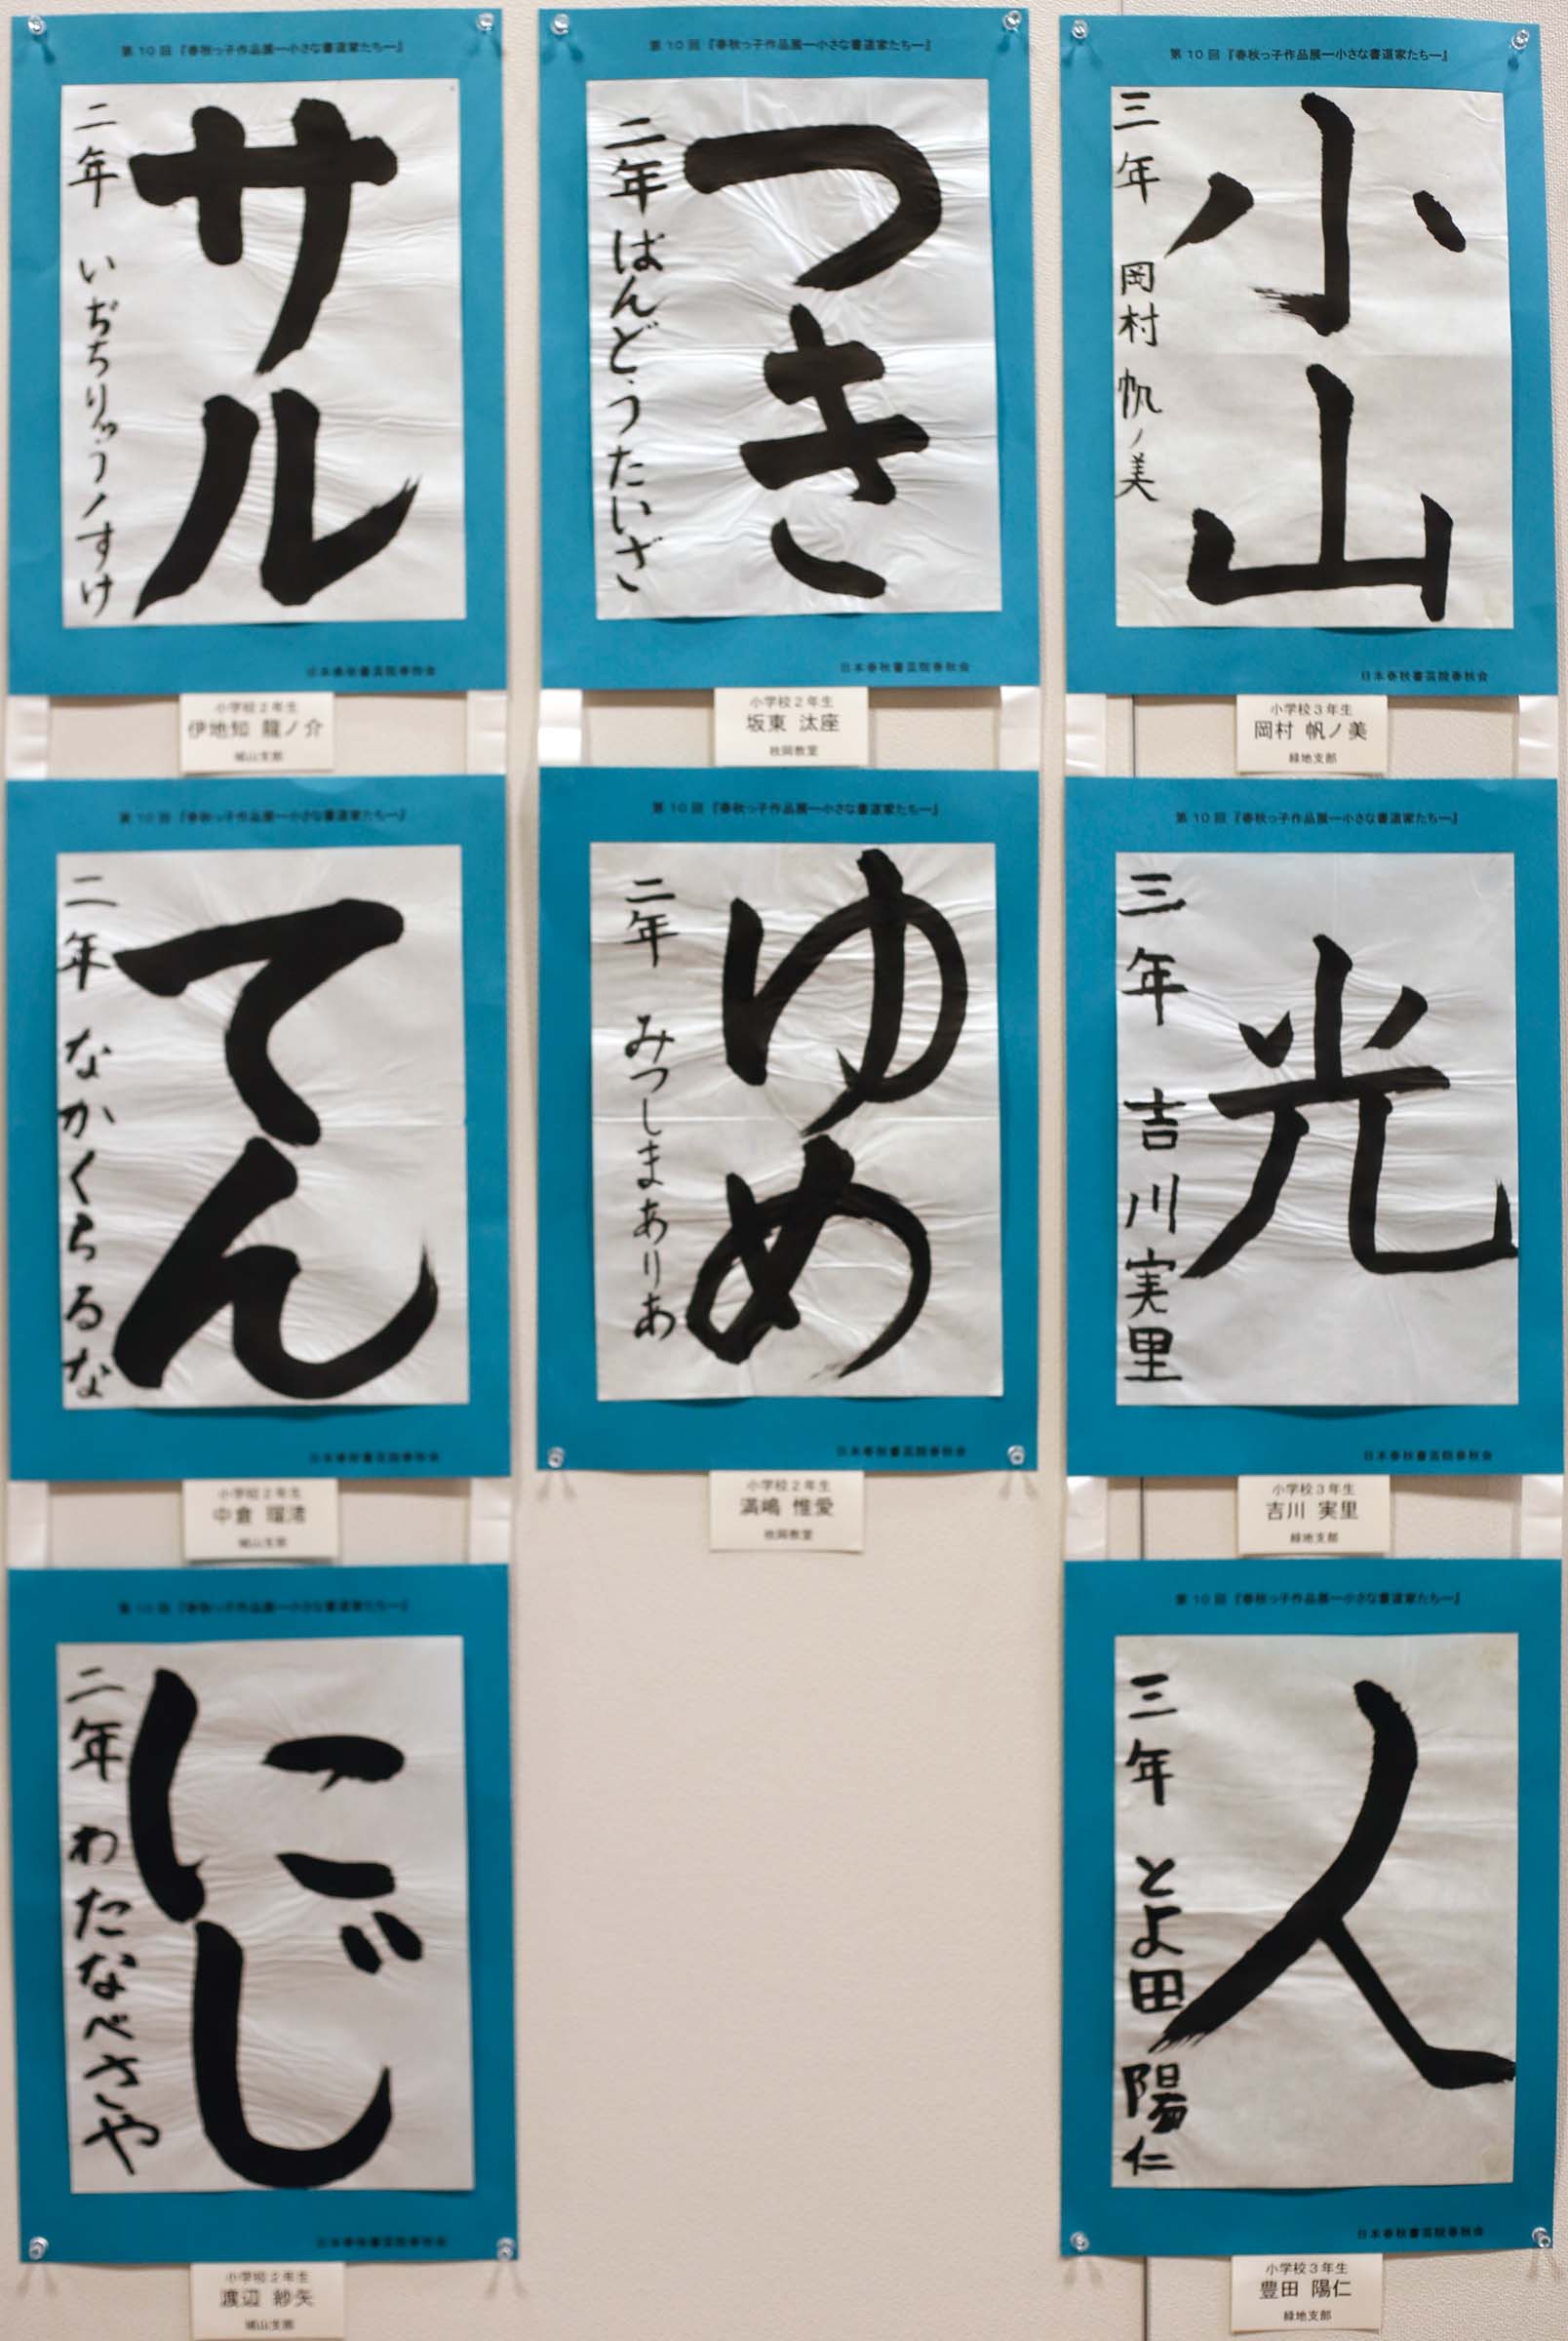 第10回『春秋っ子作品展―小さな書道家たち―』
サル
二年 いぢちりゅうノすけ
日本春秋書芸院春秋会
小学校2年生
伊地知 龍ノ介
城山支部
第10回『春秋っ子作品展―小さな書道家たち―』
てん
二年 なかくらるな
日本春秋書芸院春秋会
小学校2年生
中倉
城山支部
第10回『春秋っ子作品展―小さな書道家たち―』
にじ
二年 わたなべさや
日本春秋書芸院春秋会
小学校2年生
渡辺 紗矢
城山支部
第10回『春秋っ子作品展―小さな書道家たち―』
つき
二年 ばんどうたいざ
日本春秋書芸院春秋会
小学校2年生
坂東 汰座
牧岡教室
第10回『春秋っ子作品展―小さな書道家たち―』
ゆめ
二年 みつしまありあ
日本春秋書芸院春秋会
小学校2年生
満嶋 惟愛
牧岡教室
第10回『春秋っ子作品展―小さな書道家たち―』
小山
三年 岡村 帆ノ美
日本春秋書芸院春秋会
小学校3年生
岡村 帆ノ美
緑地支部
第10回『春秋っ子作品展―小さな書道家たち―』
光
三年 吉川実里
日本春秋書芸院春秋会
小学校3年生
吉川 実里
緑地支部
第10回『春秋っ子作品展―小さな書道家たち―』
人
三年 とよ田陽仁
日本春秋書芸院春秋会
小学校3年生
豊田 陽仁
緑地支部